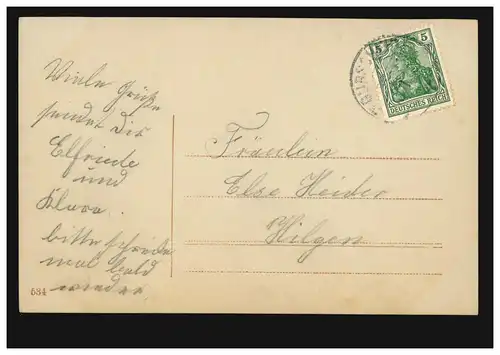 Viele Grüße
sendet Dir
Elfriede
und
Klara.
bitte schreibe
mal bald
wieder
534
Fräulein
Else Heider
Hilgen
5 5
DEUTSCHES REICH